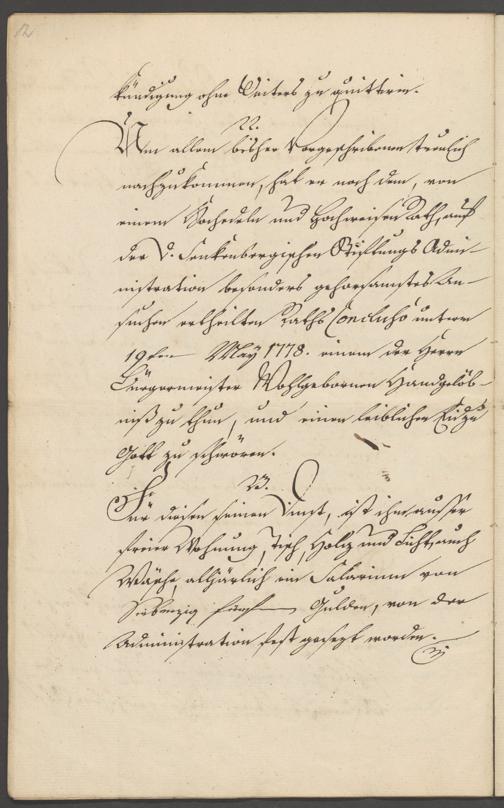 12
kündigung ohne Weiters zu quittiren.
22.
Um allem bisher Vorgeschribenen treulich
nachzukommen, hat er nach dem, von
einem Hochedeln und Hochweisen Rath, auf
der D. Senkenbergischen Stiftungs Admi-
nistration besonders gehorsamstes An-
suchen ertheilten Raths Concluso unterm
19ten May 1778. einem der Herrn
Bürgermeister Wohlgebornen Handgelöb-
niß zu thun, und einen leiblichen Eid zu
Gott zu schwören.
23.
Für diesen seinen Dinst, ist ihm ausser
freier Wohnung, Tisch, Holz und Licht, auch
Wäsche alljärlich ein Salarium von
Siebenzig fünf Gulden, von der
Administration fest gesezt worden.